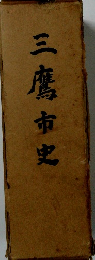 三鷹市史